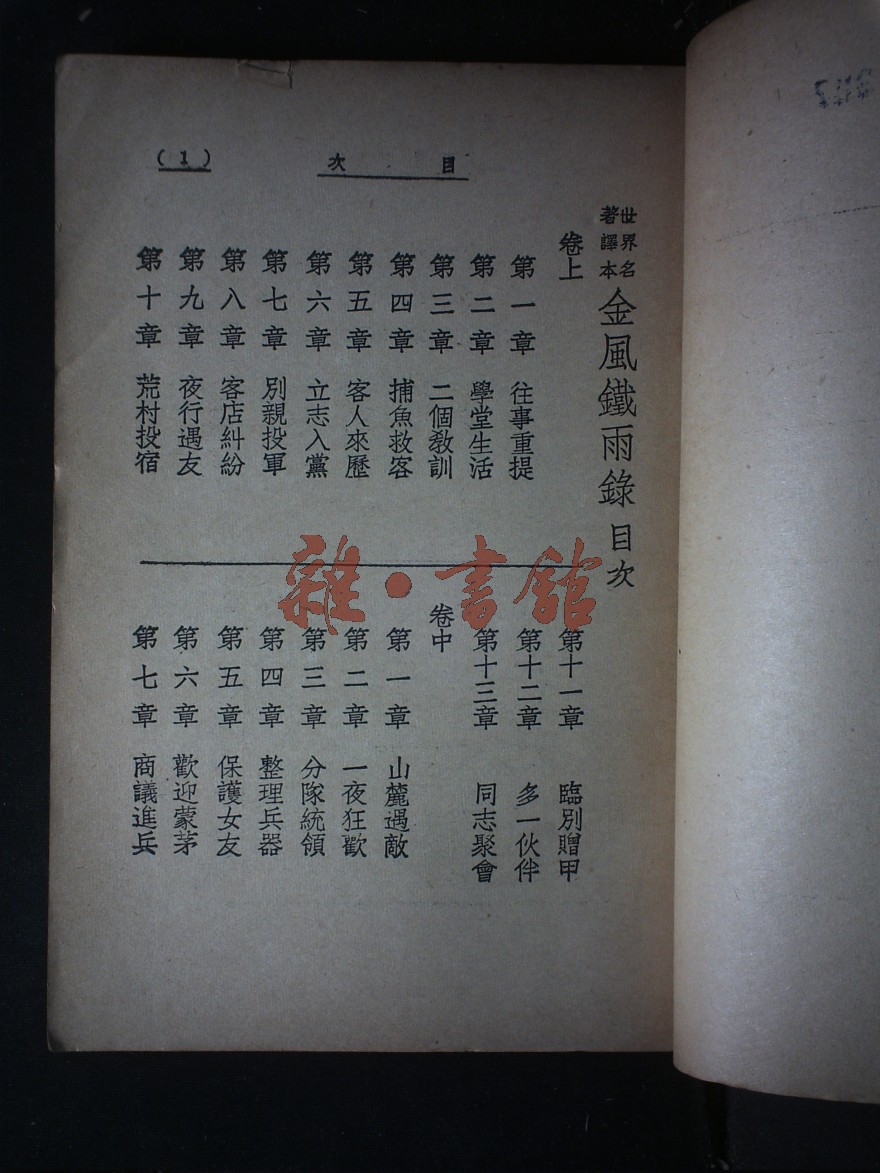 目次
(1)
世界名著譯本
金風鐵雨錄 目次
卷上
第一章 往事重提
第二章 學堂生活
第三章 二個教訓
第四章 捕魚救客
第五章 客人來歷
第六章 立志入黨
第七章 別親投軍
第八章 客店糾紛
第九章 夜行遇友
第十章 荒村投宿
第十一章 臨別贈甲
第十二章 多一伙伴
第十三章 同志聚會
卷中
第一章 山麓遇敵
第二章 一夜狂歡
第三章 分隊統領
第四章 整理兵器
第五章 保護女友
第六章 歡迎蒙茅
第七章 商議進兵
雜·書館